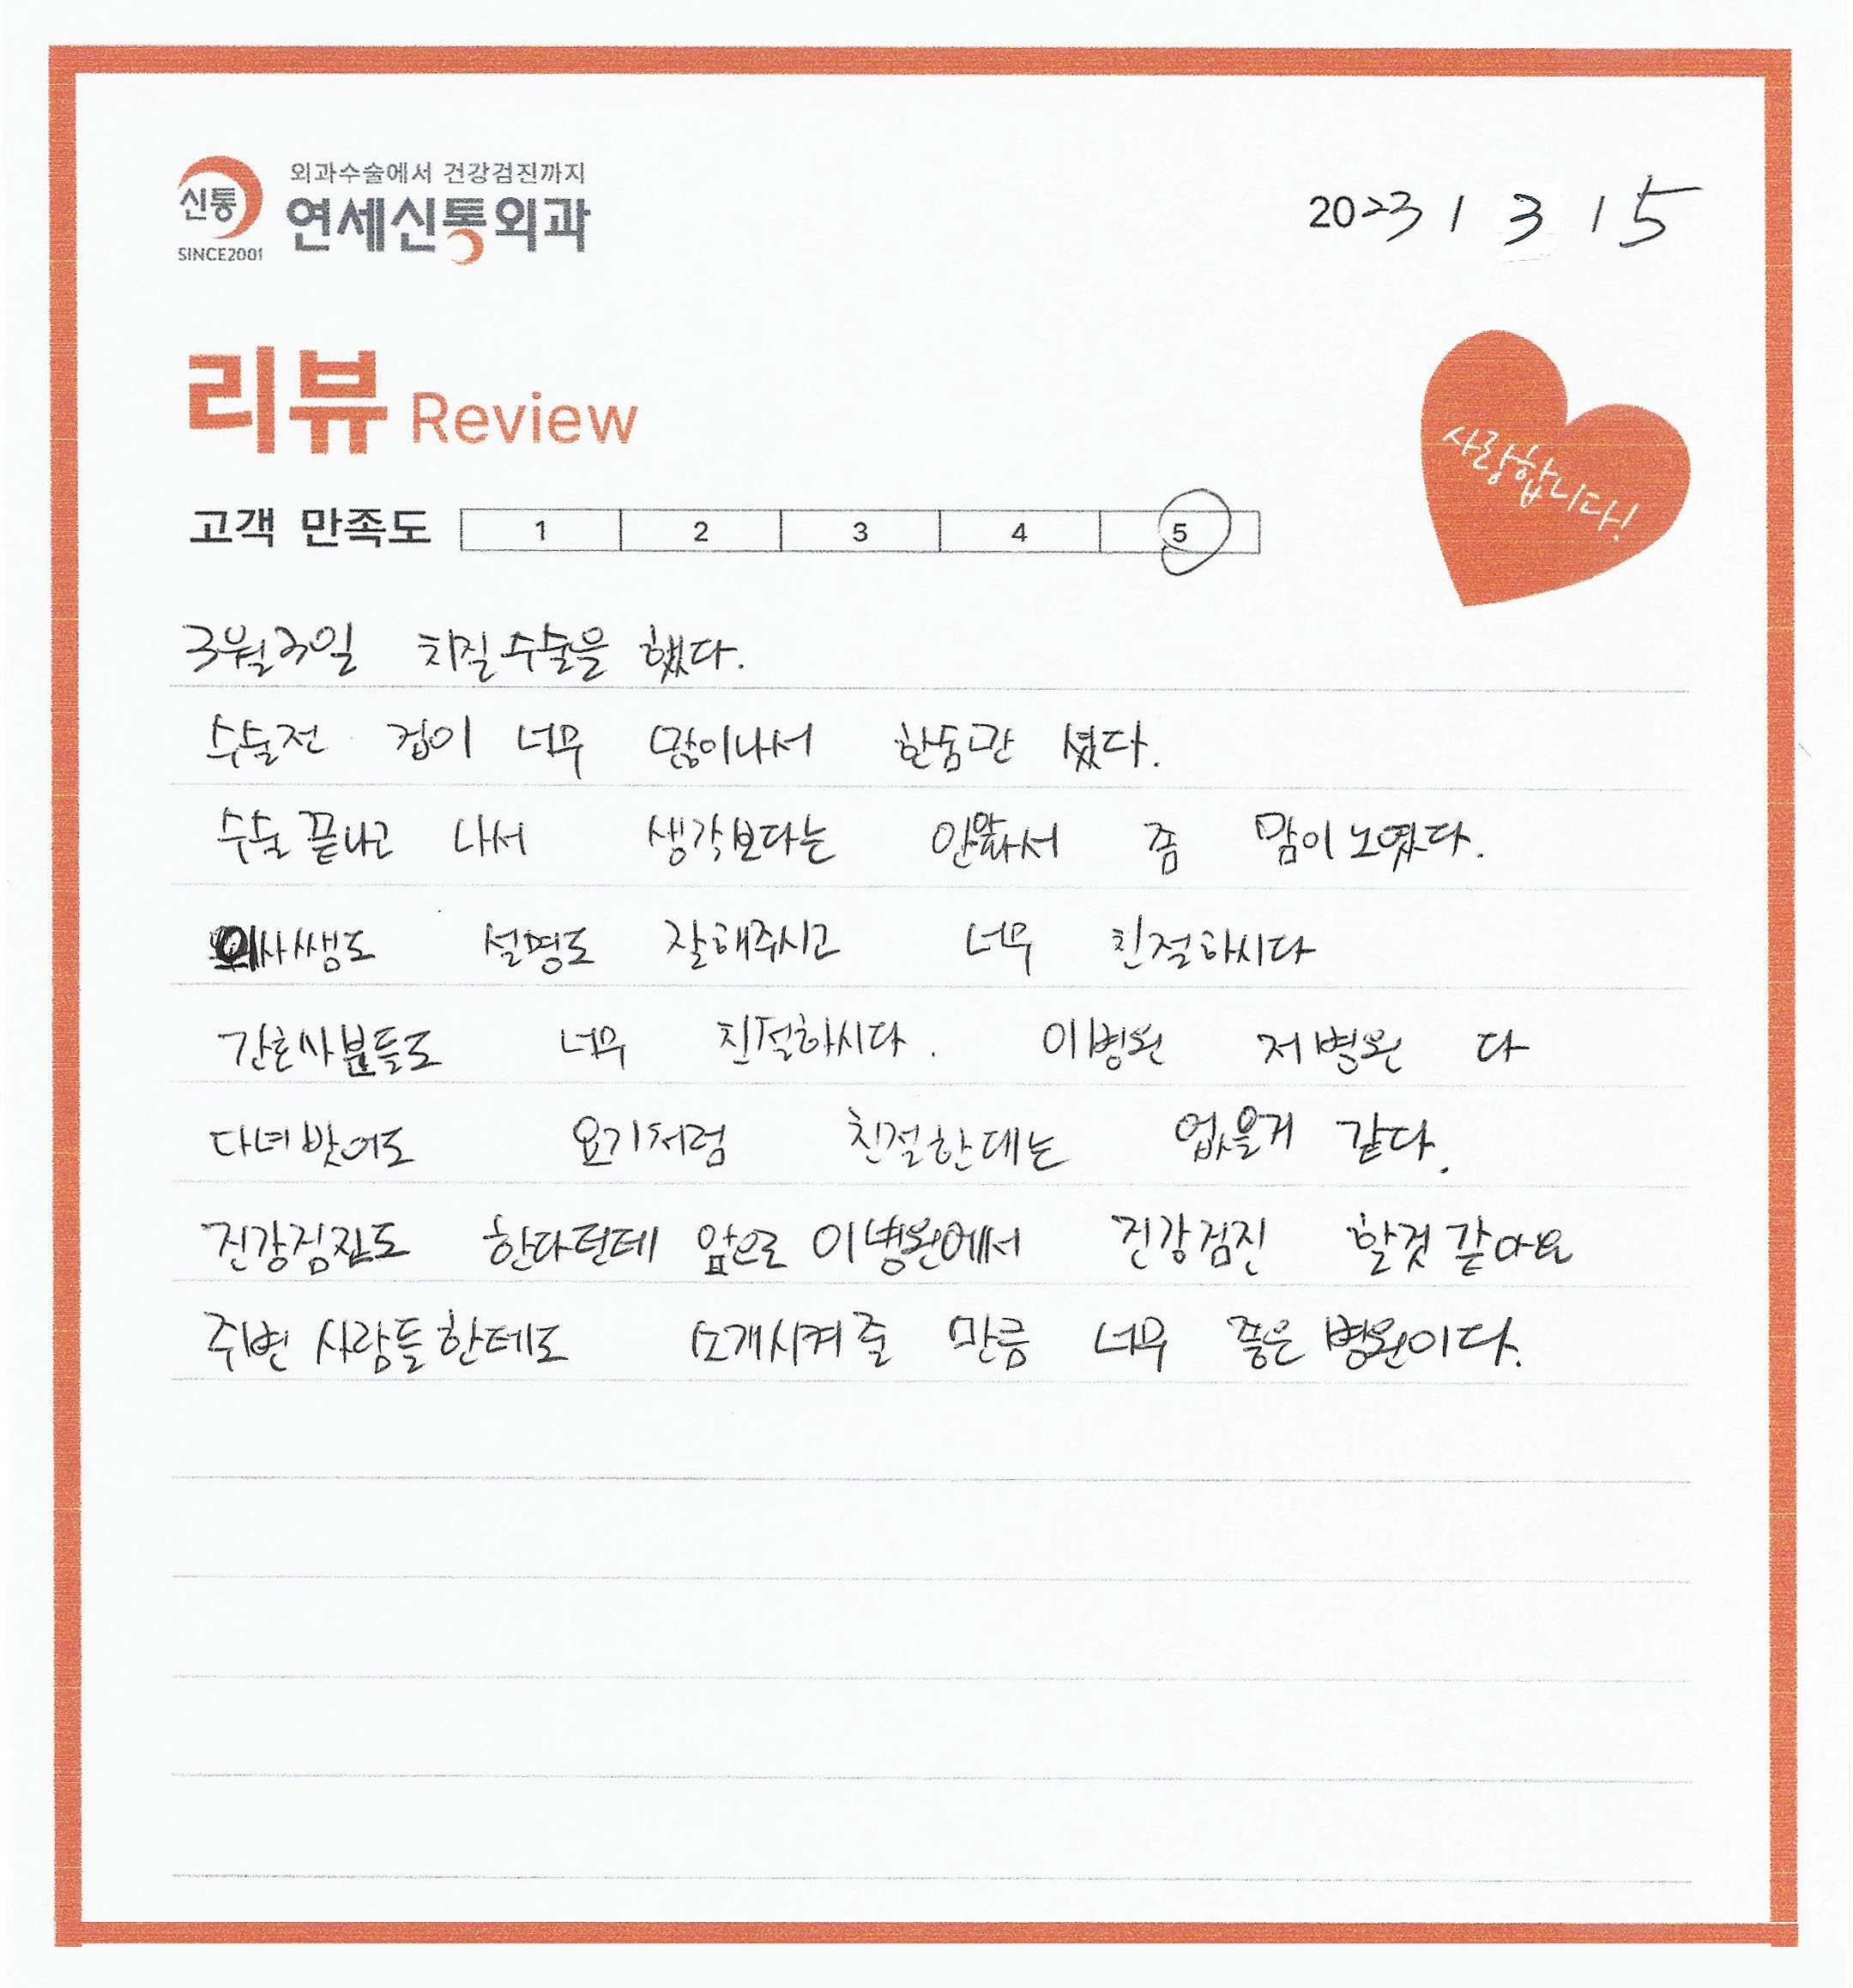 신통
SINCE2001
외과수술에서 건강검진까지
연세신통외과
2023 / 3 / 5
리뷰 Review
사랑합니다!
고객 만족도 1 2 3 4 5
3월3일 치질수술을 했다.
수술전 겁이 너무 많이나서 한동안 셨다.
수술 끝나고 나서 생각보다는 안앞아서 좀 맘이 노였다.
의사쌤도 설명도 잘해주시고 너무 친절하시다
간호사분들도 너무 친절하시다. 이병원 저병원 다
다녀밧어도 요기처럼 친절한데는 없을거 같다.
진강검진도 한다던데 앞으로 이병원에서 진강검진 할것 같아요
주변 사람들한테도 소개시켜줄 만큼 너무 좋은 병원이다.